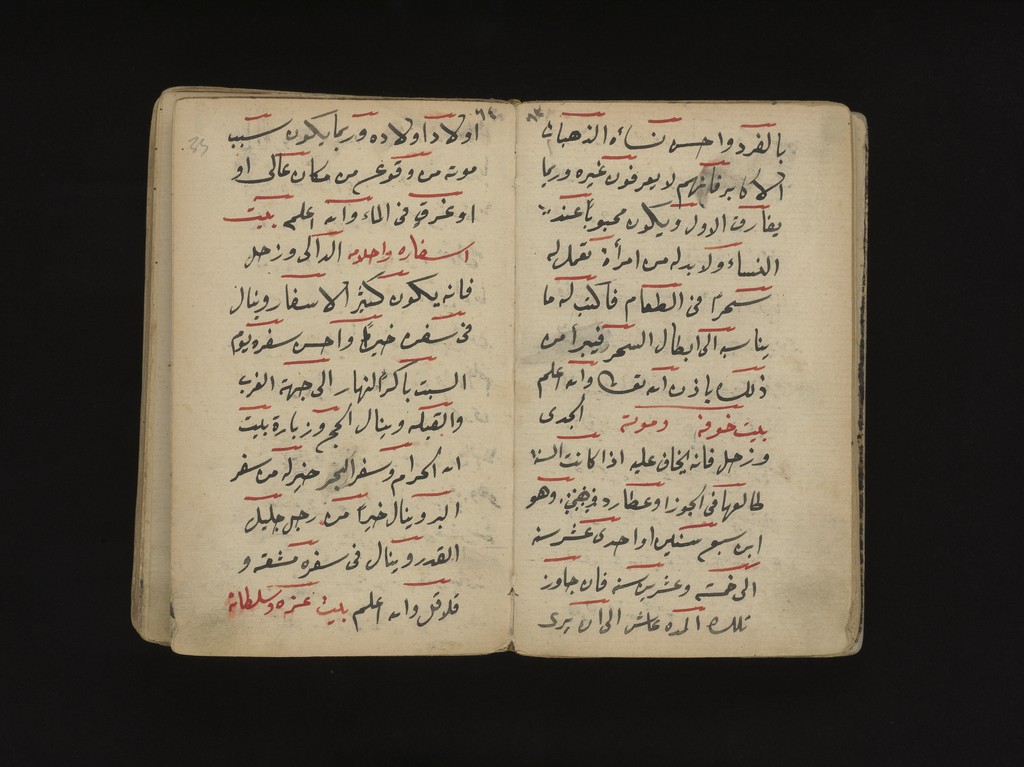 ٦٣
بالفرد واحسن نساءه الذهبات
الاكابر فانهم لا يعرفون غيره وربما
يفارق الاول ويكون محبوباً عند
النساء ولا بد له من امرأة تعمل له
سحرًا فى الطعام فاكتب له ما
يناسب الى ابطال السحر فيبرأ من
ذلك باذن الله تعا والله اعلم
بيت خوفه وموته الجدى
وزحل فانه يخاف عليه اذا كانت السنه
طالعها فى الجوزا وعطارد وهو
ابن سبع سنين او احدى عشر سنه
الى خمسة وعشرين سنه فان جاوز
تلك المده عاش الى ان يرى
٦٤
35
اولاد اولاده وربما يكون سبب
موته من وقوعه من مكان عالى او
او غرق فى الماء والله اعلم بيت
اسفاره واحلامه الدالى وزحل
فانه يكون كثير الاسفار وينال
فى سفره خيرًا واحسن سفره يوم
السبت باكر النهار الى جهة الغرب
والقبله وينال الحج وزيارة بيت
الله الحرام وسفر البحر خير له من سفر
البر وينال خيرًا من رجل جليل
القدر وينال فى سفره مشقه و
قلاقل والله اعلم بيت عزه وسلطانه